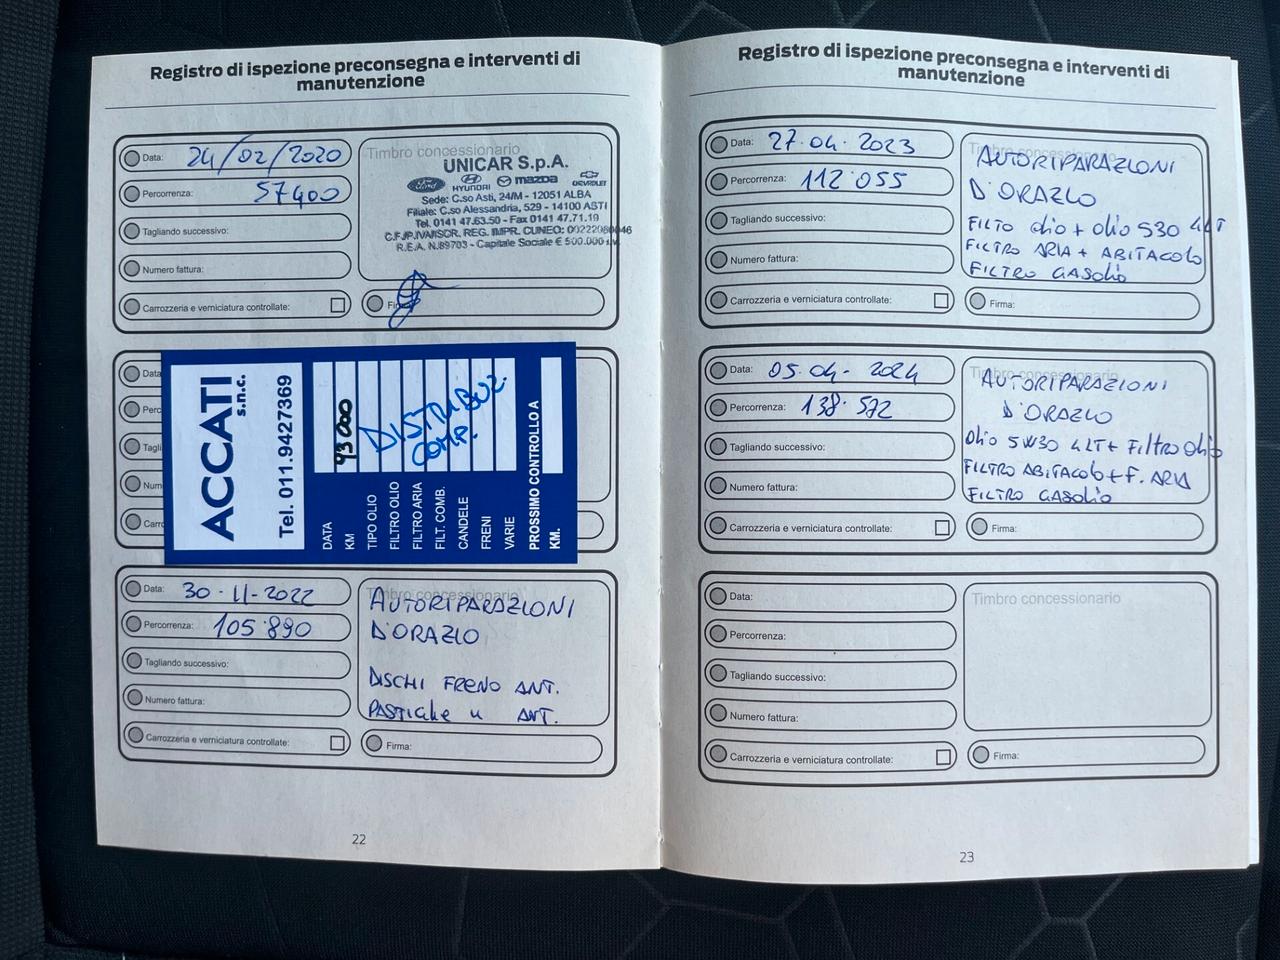 Registro di ispezione preconsegna e interventi di
manutenzione
Data: 24/02/2020
Percorrenza: 57400
Tagliando successivo:
Numero fattura:
Carrozzeria e verniciatura controllate:
Timbro concessionario
UNICAR S.p.A.
Ford HYUNDAI mazda CHEVROLET
Sede: C.so Asti, 24/M - 12051 ALBA
Filiale: C.so Alessandria, 529 - 14100 ASTI
Tel. 0141 47.63.50 - Fax 0141 47.71.19
C.F./P.IVA/ISCR. REG. IMPR. CUNEO: 00222080046
R.E.A. N.89703 - Capitale Sociale € 500.000 i.v.
Data
Perc
Tagli
Num
Carr
ACCATI
s.n.c.
Tel. 011.9427369
DATA
KM 93000
TIPO OLIO
FILTRO OLIO
FILTRO ARIA
FILT. COMB.
CANDELE
FRENI
VARIE
DISTRIBUZ.
COMP.
PROSSIMO CONTROLLO A
KM.
Data: 30-11-2022
Percorrenza: 105.890
Tagliando successivo:
Numero fattura:
Carrozzeria e verniciatura controllate:
Timbro concessionario
AUTORIPARAZIONI
D'ORAZIO
DISCHI FRENO ANT.
PASTIGLIE " ANT.
Firma:
22
Registro di ispezione preconsegna e interventi di
manutenzione
Data: 27.04.2023
Percorrenza: 112.055
Tagliando successivo:
Numero fattura:
Carrozzeria e verniciatura controllate:
AUTORIPARAZIONI
D'ORAZIO
FILTO OLIO + OLIO 530 4LT
FILTRO ARIA + ABITACOLO
FILTRO GASOLIO
Firma:
Data: 05.04-2024
Percorrenza: 138.572
Tagliando successivo:
Numero fattura:
Carrozzeria e verniciatura controllate:
Timbro concessionario
AUTORIPARAZIONI
D'ORAZIO
OLIO 5W30 4LT+ FILTRO OLIO
FILTRO ABITACOLO + F. ARIA
FILTRO GASOLIO
Firma:
Data:
Percorrenza:
Tagliando successivo:
Numero fattura:
Carrozzeria e verniciatura controllate:
Timbro concessionario
Firma:
23